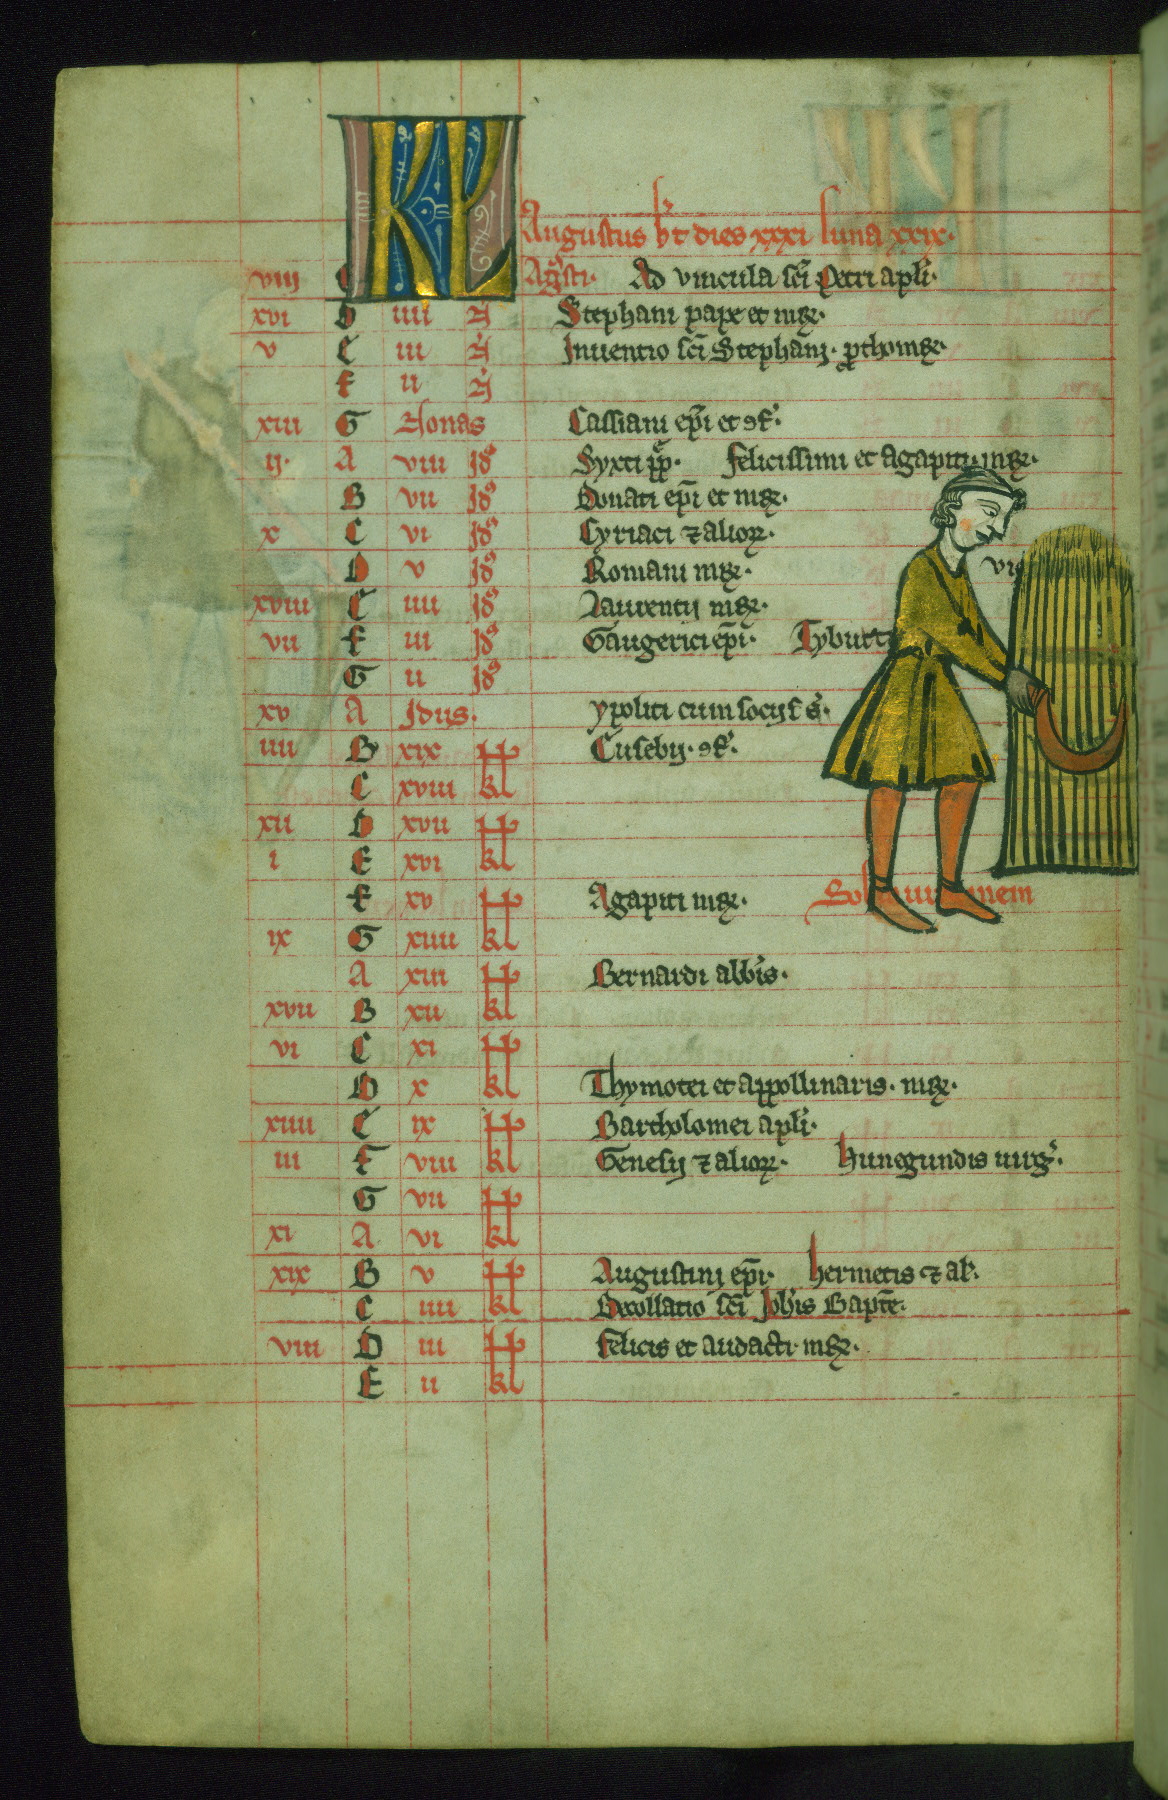 KL
Augustus ht dies xxxi luna xxix.
viii C Agusti. Ad vincula sci Petri apli.
xvi D iiii N Stephani pape et mr.
v E iii N Inuentio sci Stephani. prothomr.
F ii N
xiii G Nonas Cassiani epi et cf.
ii. A viii Id Syxti pp. Felicissimi et agapiti. mr.
B vii Id Donati epi et mr.
x C vi Id Cyriaci et alior.
D v Id Romani mr. vi
xviii E iiii Id Laurentij mr.
vii F iii Id Gaugerici epi. Tyburt
G ii Id
xv A Idus. Ypoliti cum socijs s.
iiii B xix kl Eusebij. cf.
C xviii kl
xii D xvii kl
i E xvi kl
F xv kl Agapiti mr. Sol in uirginem
ix G xiiii kl
A xiii kl Bernardi abbis.
xvii B xii kl
vi C xi kl
D x kl Thymotei et appollinaris. mr.
xiiii E ix kl Bartholomei apli.
iii F viii kl Genesij et alior. Hunegundis uirg.
G vii kl
xi A vi kl
xix B v kl Augustini epi. Hermetis et al.
C iiii kl Decollatio sci Johis Bapte.
viii D iii kl Felicis et audacti. mr.
E ii kl